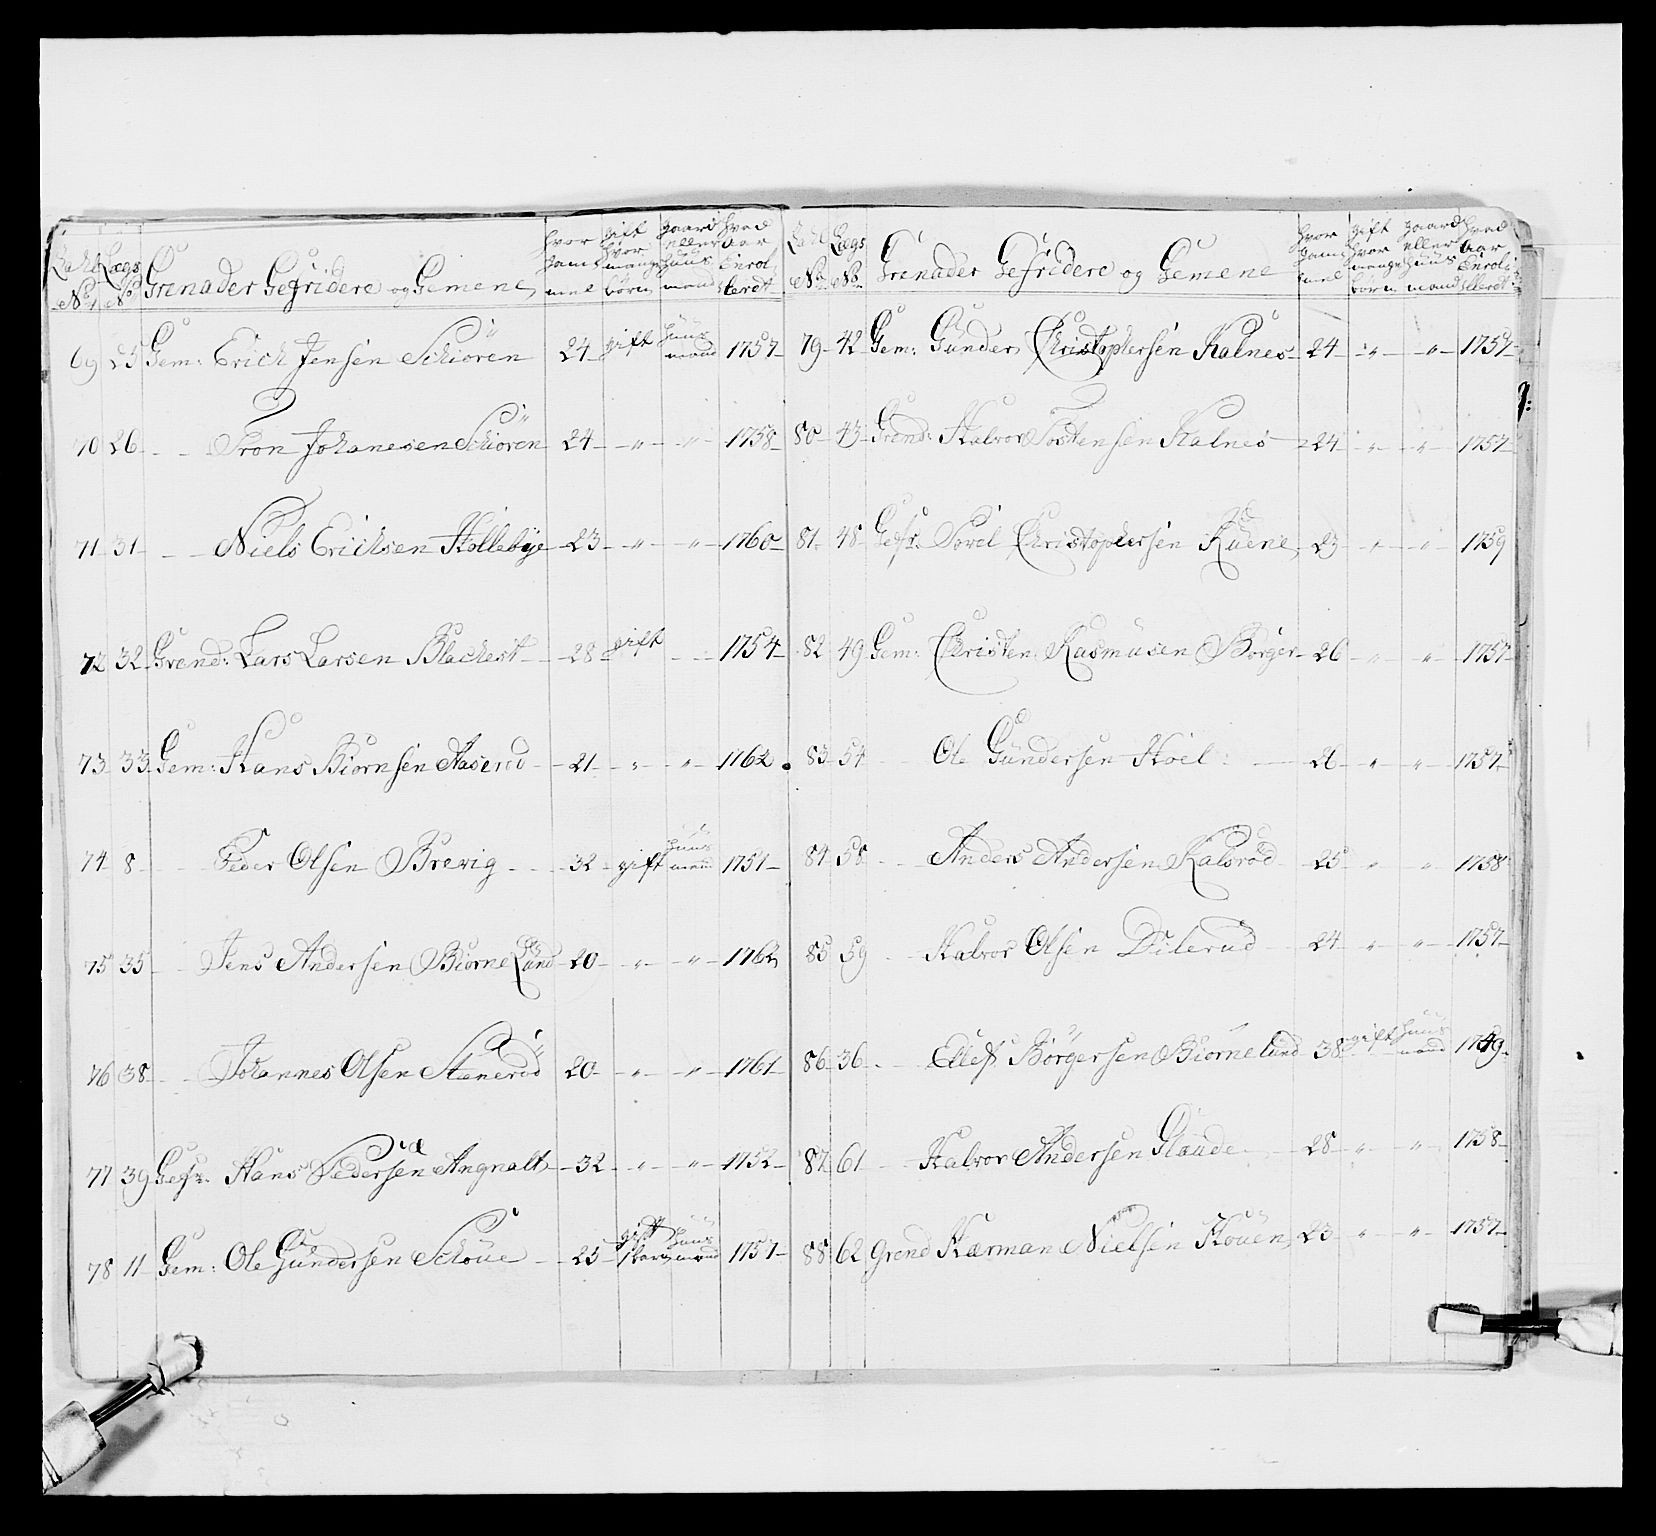 Tahl No Lægs No Grenader Gefridere og Gemene hvor gammel gift hvor mange børn gaard eller huus mand hvad aar Enrollerdt
69 25 Gem: Erich Jensen Schiören 24 gift huus mand 1757
70 26 Tron Johanesen Schiören 24 " " 1758
71 31 Niels Ericksen Hollebÿe 23 " " 1760
72 32 Grend: Lars Larsen Blackest 28 gift 1754
73 33 Gem: Hans Biörnsen Aaserud 21 " " 1762
74 8 Peder Olsen Brevig 32 gift huus mand 1751
75 35 Jens Andersen Biörne Lund 20 " " 1762
76 38 Johannes Olsen Stenerud 20 " " 1761
77 39 Gefr. Hans Pedersen Angnalt 32 " " 1752
78 11 Gem: Ole Gundersen Schöue 25 gift huus mand 1757
Tahl No Lægs No Grenader Gefridere og Gemene hvor gammel gift hvor mange børn gaard eller huus mand hvad aar Enrollerdt
79 42 Gem: Gunder Christophersen Kalnes 24 " " 1757
80 43 Grend: Halvor Tostensen Kalnes 24 " " 1757
81 48 Gefr. Povel Christophersen Ruene 23 " " 1759
82 49 Gem: Christen Rasmusen Borger 26 " " 1757
83 54 Ole Gundersen Hoel 26 " " 1757
84 58 Anders Andersen Kalsröd 25 " " 1758
85 59 Halvor Olsen Dilerud 24 " " 1757
86 36 Ellef Börgersen Biörnelund 38 gift huus mand 1749
87 61 Halvor Andersen Glaade 28 " " 1758
88 62 Grend Herman Nielsen Houen 23 " " 1757